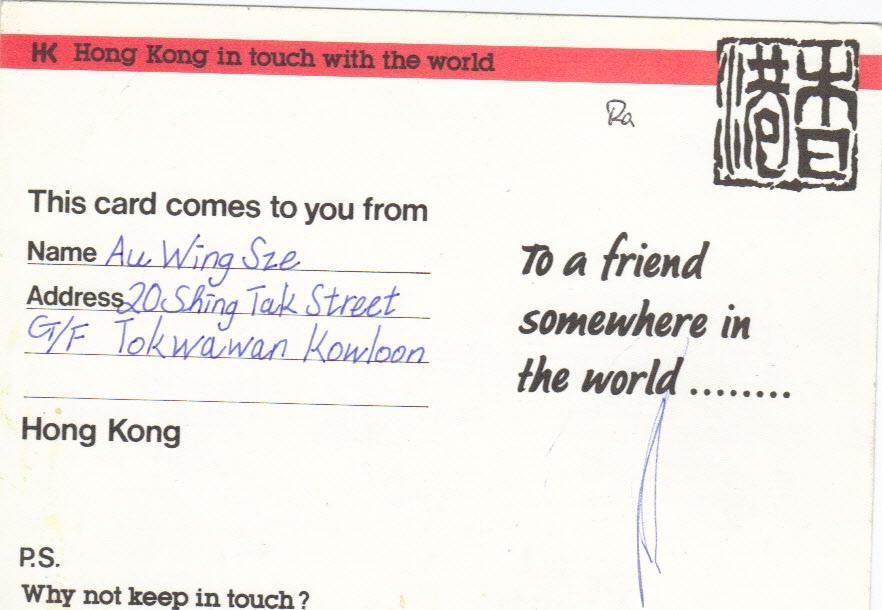 HK Hong Kong in touch with the world
香港
Ra
This card comes to you from
Name Au Wing Sze
Address 20 Shing Tak Street
G/F Tokwawan Kowloon
Hong Kong
To a friend
somewhere in
the world ........
P.S.
Why not keep in touch?